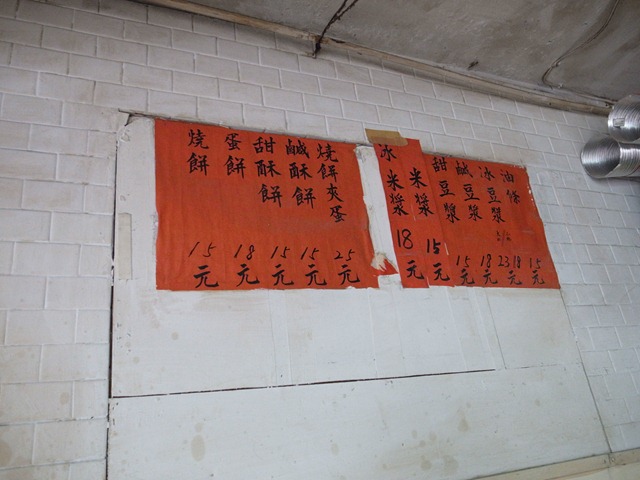 燒餅夾蛋 25元
鹹酥餅 15元
甜酥餅 15元
蛋餅 18元
燒餅 15元
油條 15元
冰豆漿 23 18元
鹹豆漿 18元
甜豆漿 15元
米漿 15元
冰米漿 18元